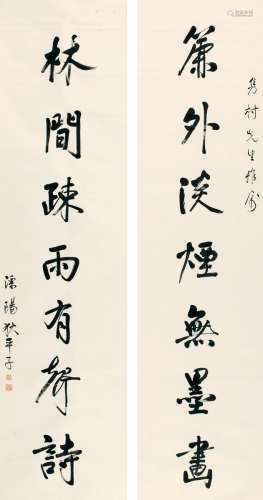 雋村先生雅属
簾外淡煙無墨畫
林間疎雨有聲詩
溧陽狄平子